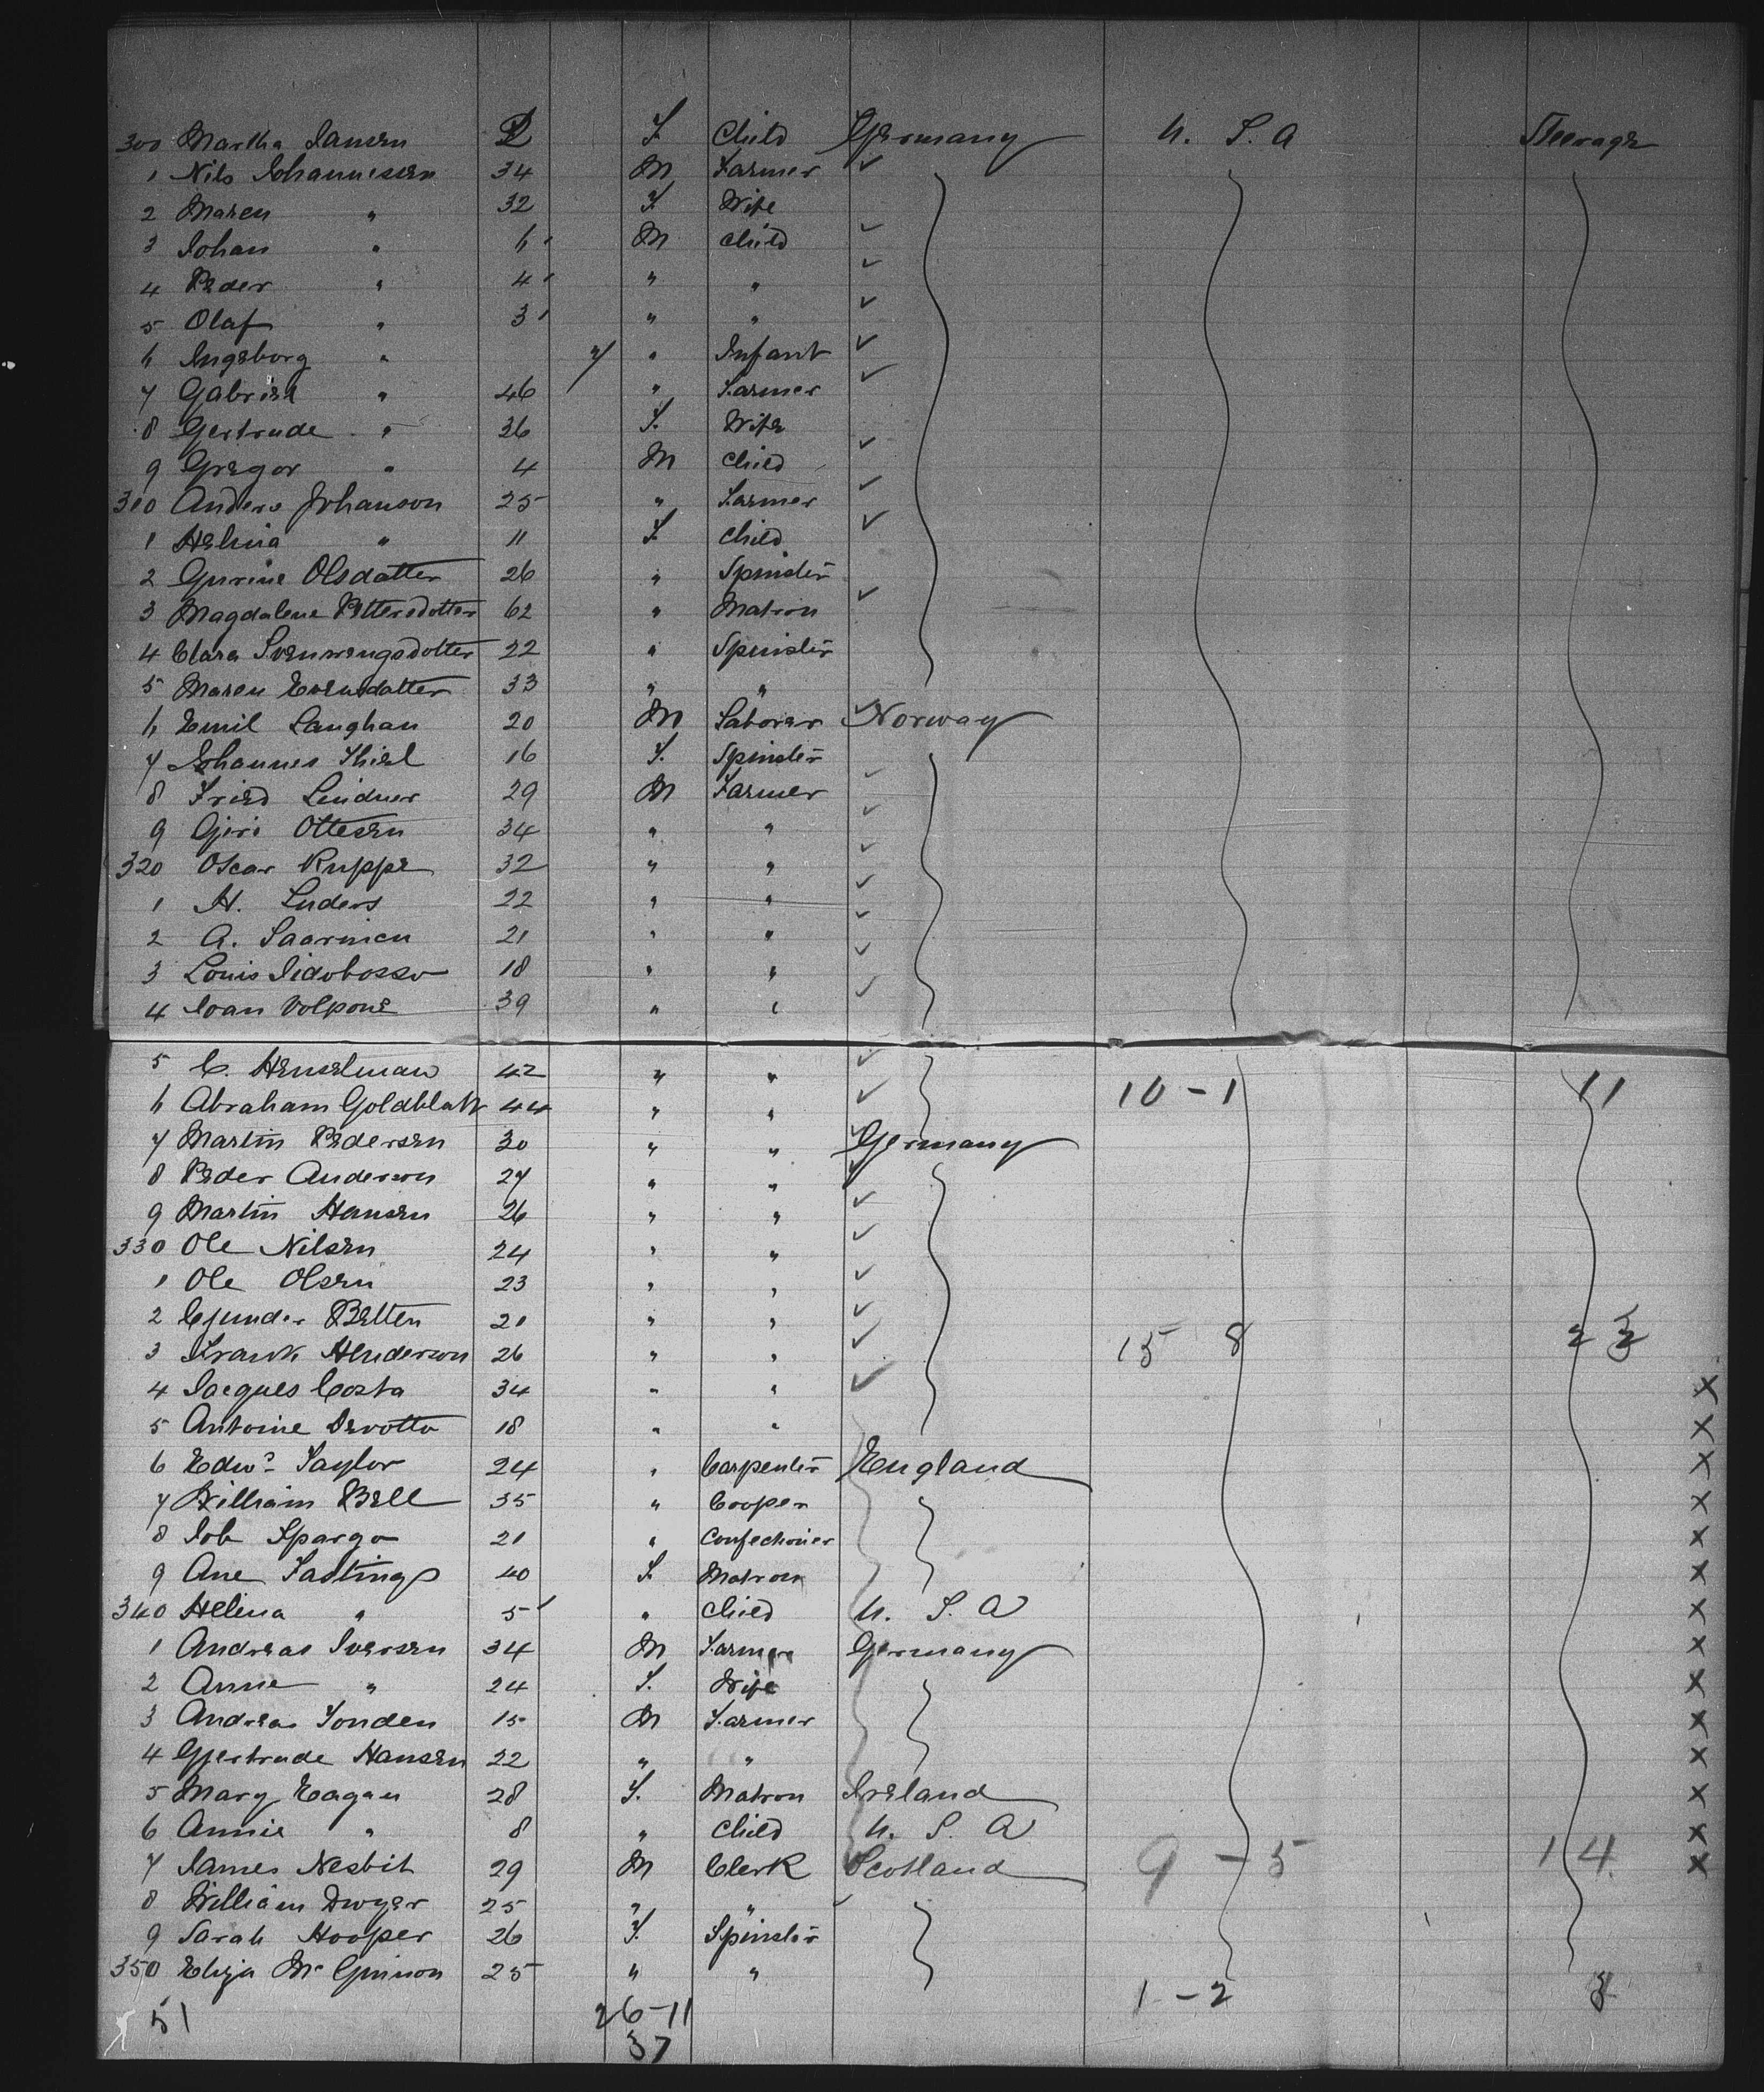 300 Martha Jansen 2 F. Child Germany U. S. A Steerage
1 Nils Johannesen 34 M Farmer
2 Maren " 32 F. Wife
3 Johan " 6 M Child
4 Peder " 4 " "
5 Olaf " 3 " "
6 Ingeborg " " Infant
7 Gabriel " 46 " Farmer
8 Gertrude " 36 F. Wife
9 Gregor " 4 M Child
310 Anders Johanson 25 " Farmer
1 Helina " 11 F. Child
2 Gurine Olsdatter 26 " Spinster
3 Magdalene Pettersdotter 62 " Matron
4 Clara 22 " Spinster
5 Maren Evensdatter 33 " "
6 Emil Langhan 20 M Laborer Norway
7 Johannes Thiel 16 F. Spinster
8 Fried Lindner 29 M Farmer
9 Gjeri Ottesen 34 " "
320 Oscar Ruppe 32 " "
1 H. Luders 22 " "
2 A. Saarnien 21 " "
3 Louis 18 " "
4 Joan Volpone 39 " "
5 C. Henselman 42 " "
6 Abraham Goldblatt 44 " " 10 - 1 11
7 Martin Pedersen 30 " " Germany
8 Peder Anderson 27 " "
9 Martin Hansen 26 " "
330 Ole Nilsen 24 " "
1 Ole Olsen 23 " "
2 Betten 21 " "
3 Frank Henderson 26 " " 15 8 23
4 Jacques Costa 34 " " X
5 Antoine 18 " " X
6 Edwd. Taylor 24 " Carpenter England X
7 William Bell 35 " Cooper X
8 Job Spargo 21 " Confectioner X
9 Ane Fastings 40 F. Matron X
340 Helena " 5 " Child U. S. A X
1 Andreas Iversen 34 M Farmer Germany X
2 Anne " 24 F. Wife X
3 Andreas Tonden 15 M Farmer X
4 Gjertrude Hansen 22 " " X
5 Mary Eagan 28 F. Matron Ireland X
6 Annie " 8 " Child U. S. A X
7 James Nesbit 29 M Clerk Scotland 9 - 5 14 X
8 William Dwyer 25 " "
9 Sarah Hooper 26 F. Spinster
350 Eliza Mc Ginnon 25 " "
1 - 2 3
51 26-11
37